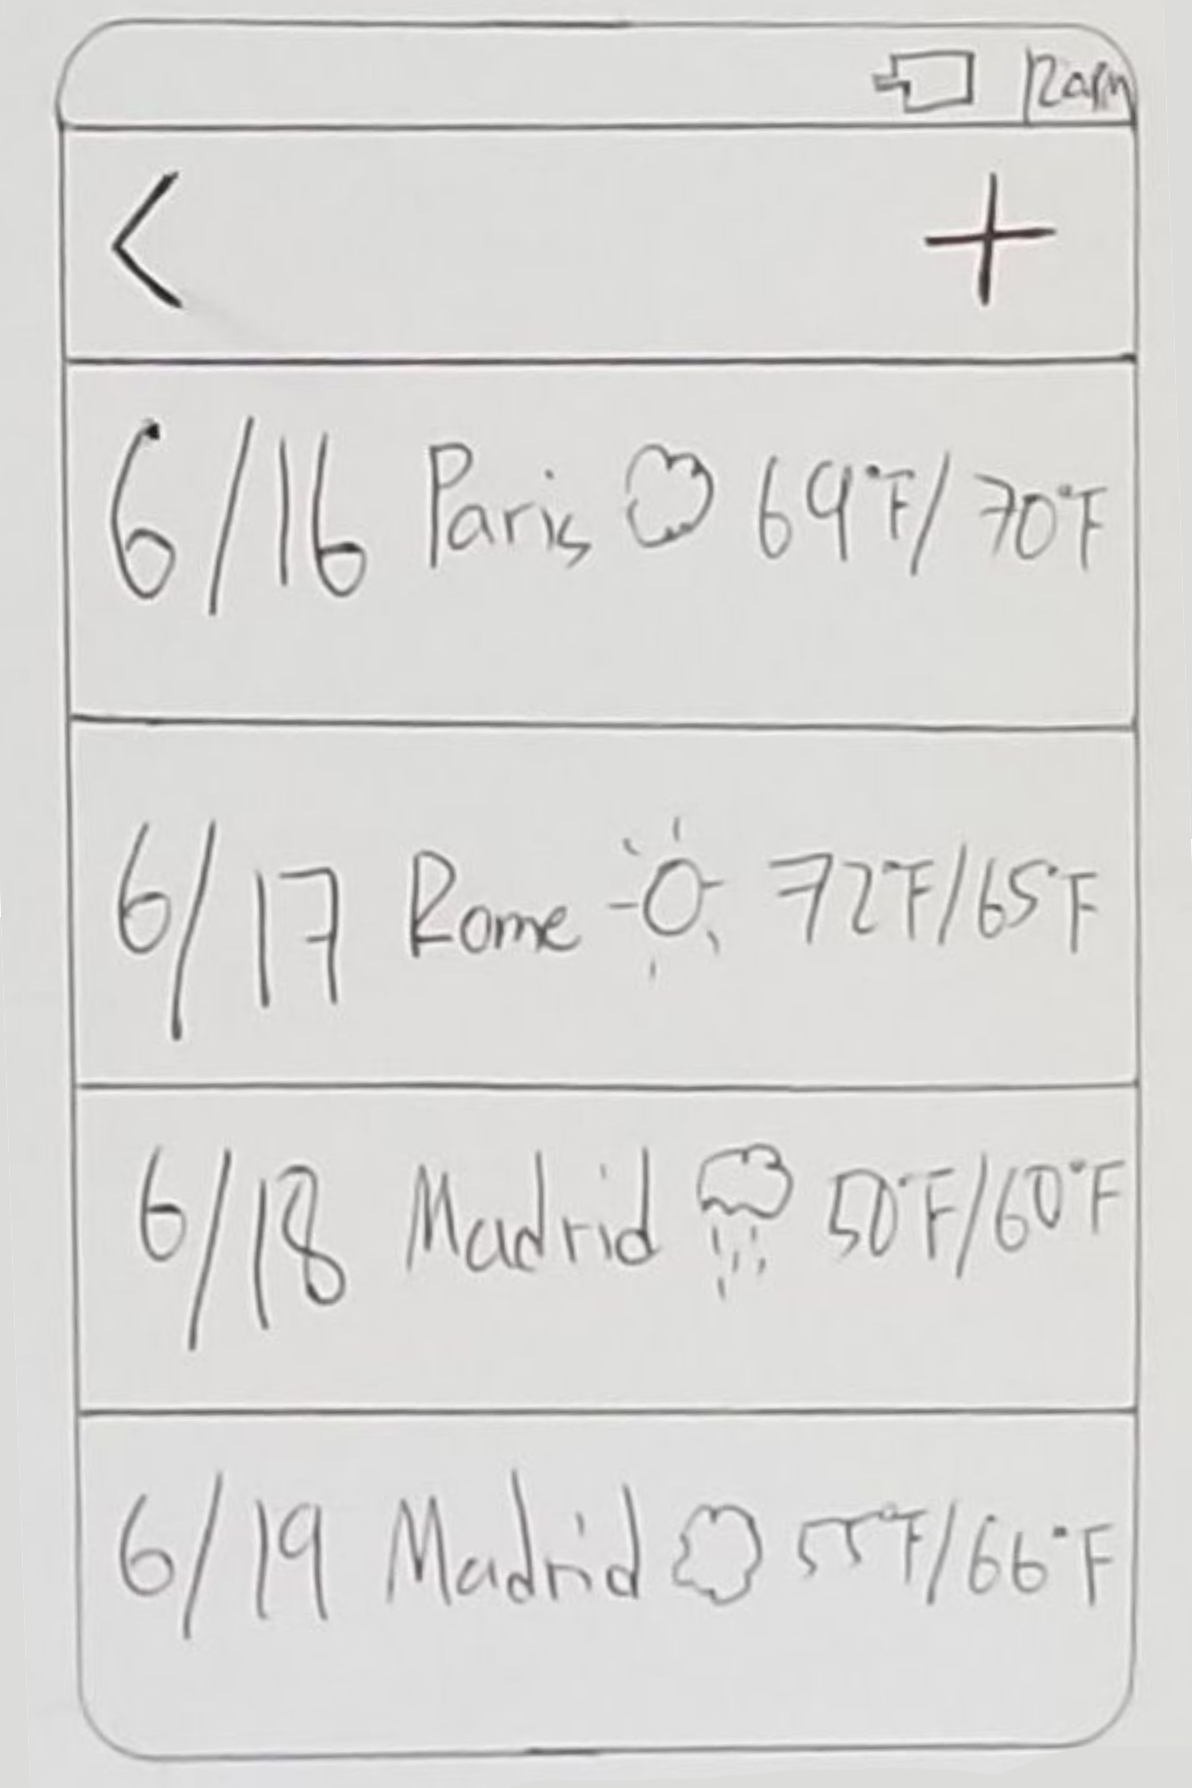 12am
< +
6/16 Paris 69°F/70°F
6/17 Rome 72°F/65°F
6/18 Madrid 50°F/60°F
6/19 Madrid 55°F/66°F